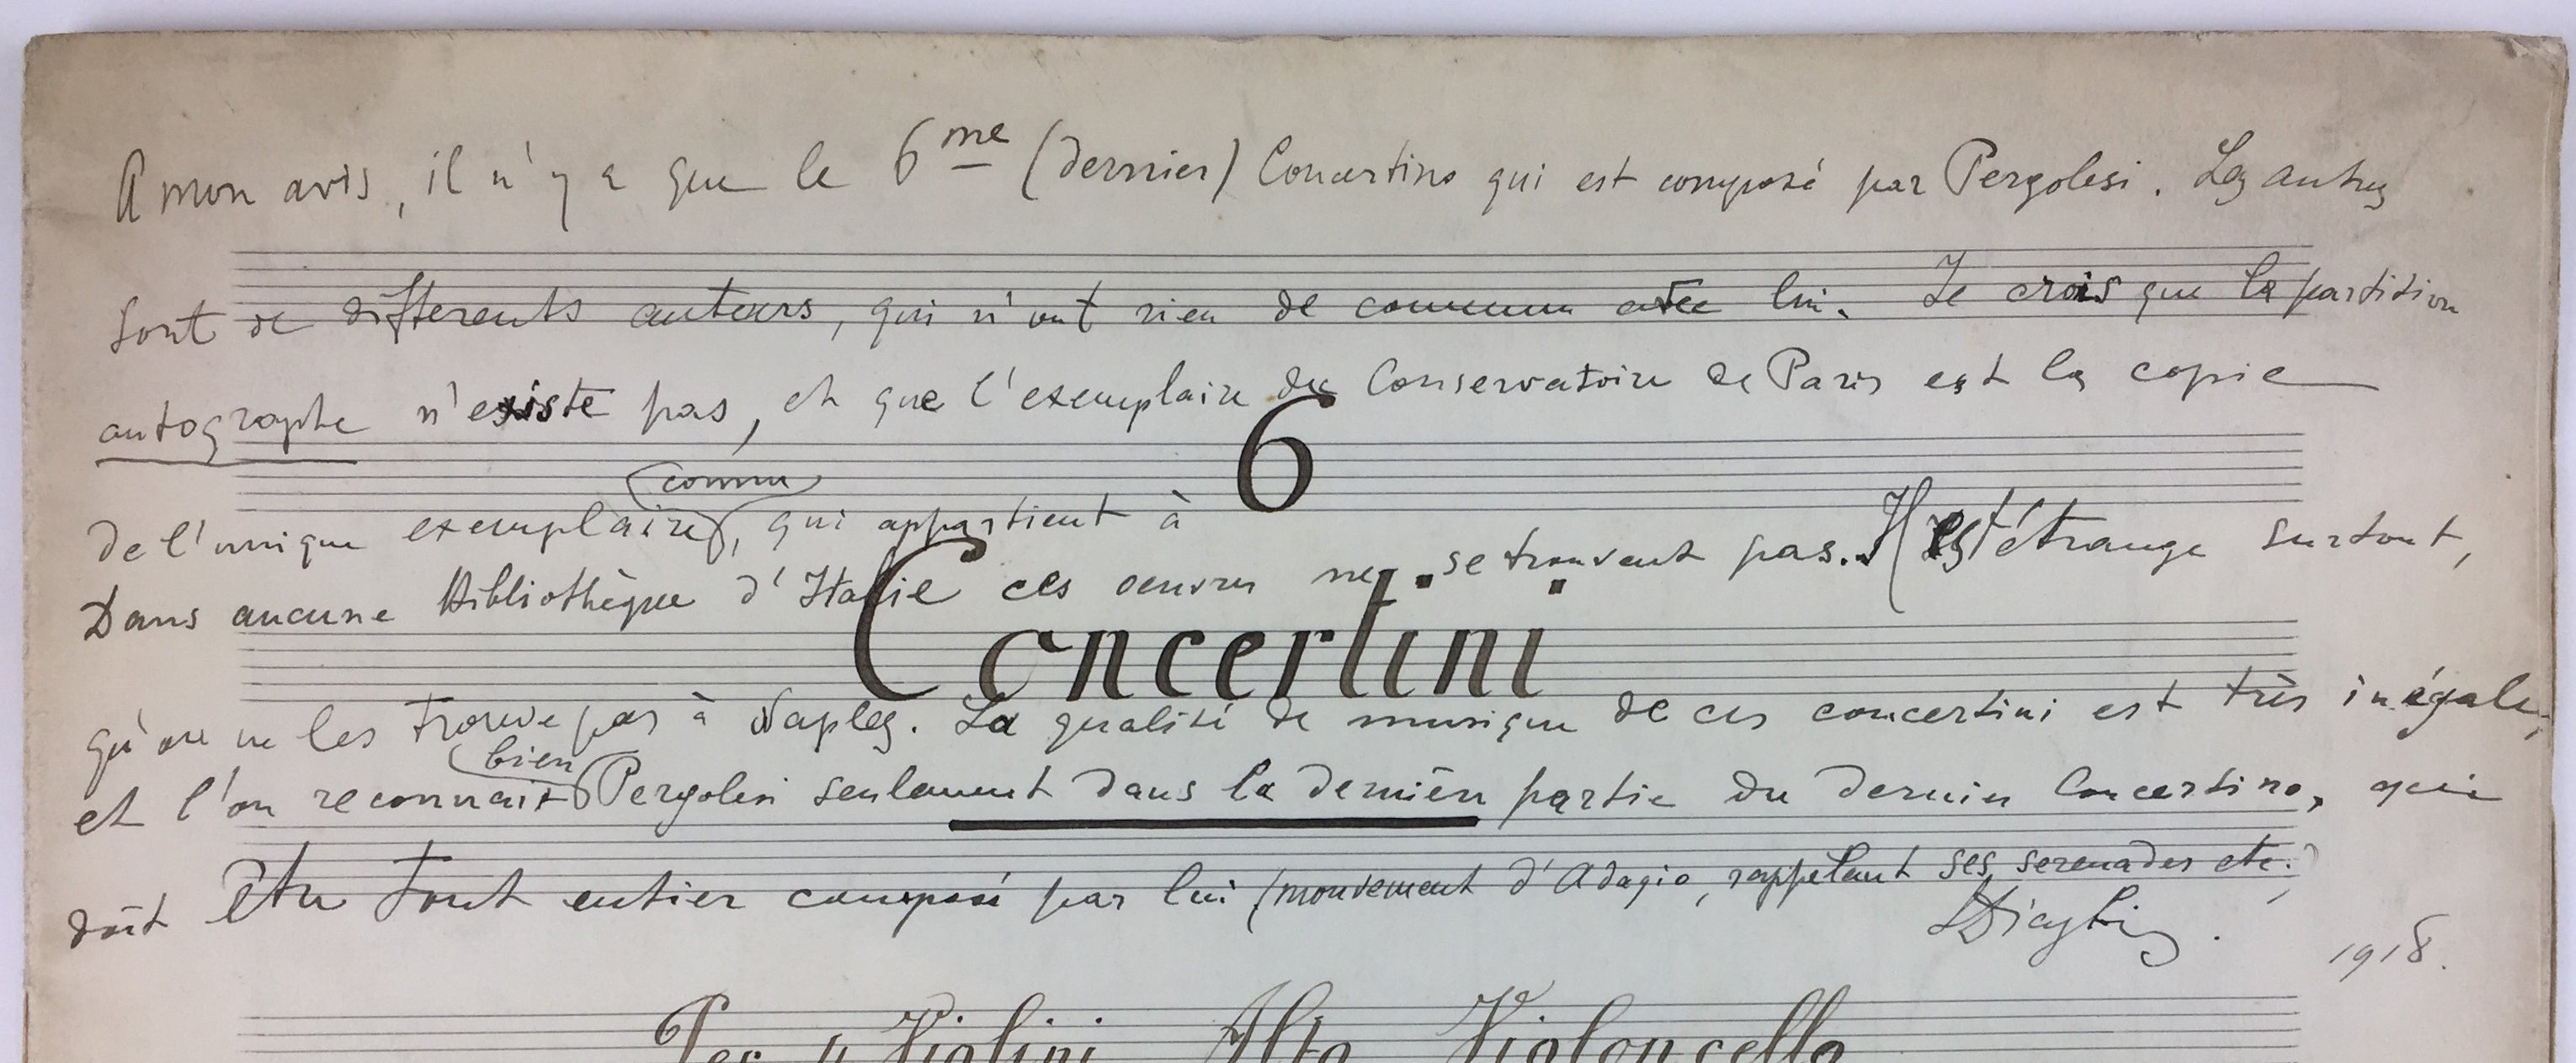 A mon avis, il n'y a que le 6me (dernier) Concertino qui est composé par Pergolesi. Les autres
sont de differents auteurs, qui n'ont rien de commun avec lui. Je crois que la partition
autographe n'existe pas, et que l'exemplaire du Conservatoire de Paris est la copie
6
connu
de l'unique exemplaire, qui appartient à
Dans aucune Bibliothèque d'Italie ces oeuvres ne se trouvent pas. Il est étrange surtout,
Concertini
qu'on ne les trouve pas à Naples. La qualité de musique de ces concertini est très inégale,
bien
et l'on reconnait Pergolesi seulement dans la dernière partie du dernier Concertino, qui
doit être tout entier composé par lui (mouvement d'Adagio, rappelant ses serenades etc.)
1918.
Per 4 Violini Alto Violoncello